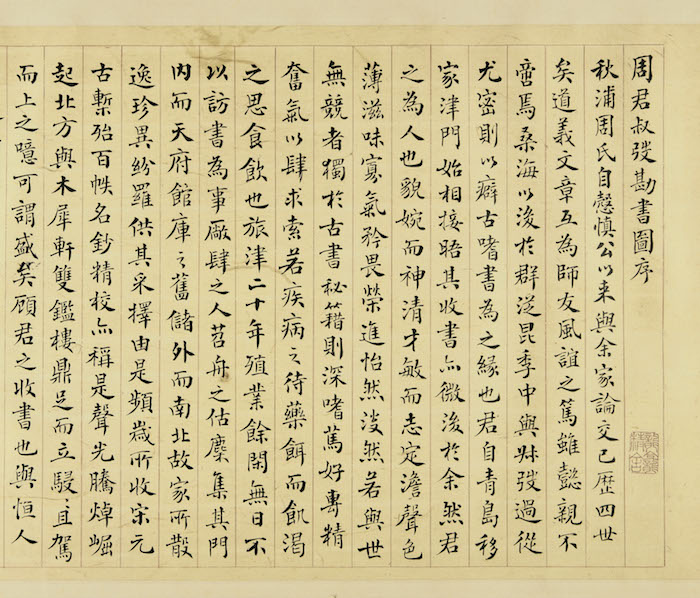 周君叔弢勘書圖序
秋浦周氏自慤慎公以来與余家論交已歷四世
矣道義文章互為師友風誼之篤雖懿親不
啻焉桑海以後於群從昆季中與叔弢過從
尤密則以癖古嗜書為之緣也君自青島移
家津門始相接晤其收書亦微後於余然君
之為人也貌婉而神清才敏而志定澹聲色
薄滋味寡氣矜畏榮進怡然淡然若與世
無競者獨於古書祕籍則深嗜篤好專精
奮氣以肆求索若疾病之待藥餌而飢渴
之思食飲也旅津二十年殖業餘閑無日不
以訪書為事廠肆之人苕舟之估麇集其門
内而天府館庫之舊儲外而南北故家所散
逸珍異紛羅供其采擇由是頻歲所收宋元
古槧殆百帙名鈔精校亦稱是聲光騰焯崛
起北方與木犀軒雙鑑樓鼎足而立駸〻且駕
而上之噫可謂盛矣顧君之收書也與恒人